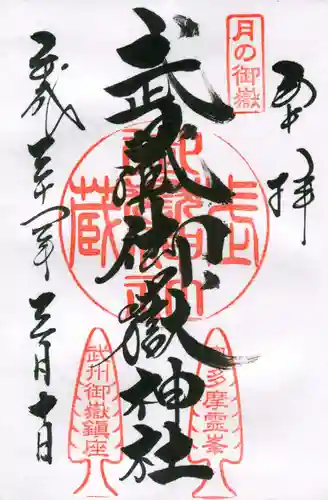 奉拝
月の御嶽
武蔵御嶽神社
武蔵
奥多摩霊峯
武州御嶽鎮座
平成三十一年三月十日